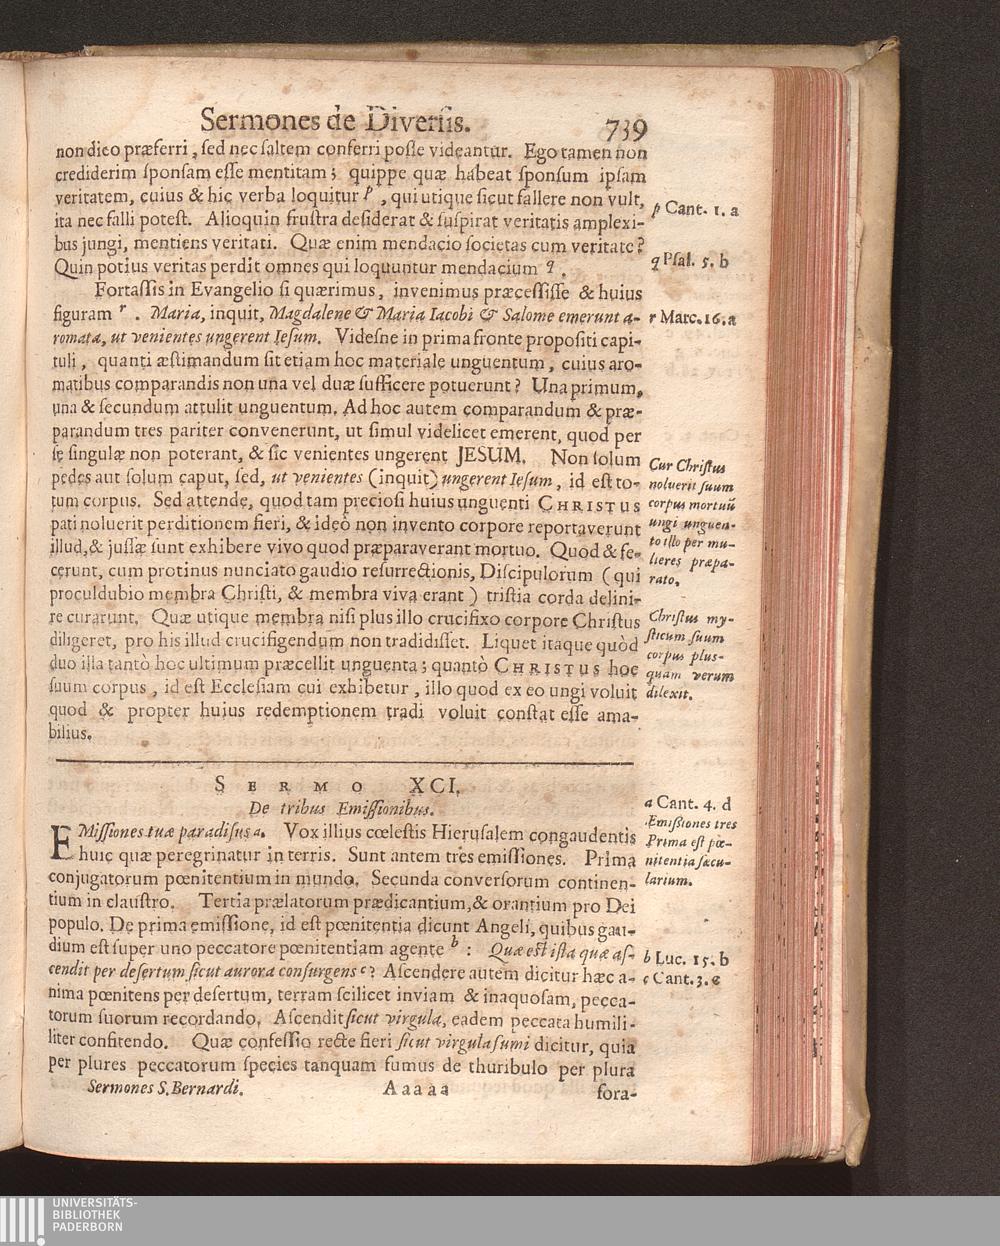 Sermones de Diversis. 739
non dico præferri, sed nec saltem conferri posse videantur. Ego tamen non
crediderim sponsam esse mentitam; quippe quæ habeat sponsum ipsam
veritatem, cuius & hic verba loquitur p, qui utique sicut fallere non vult,
ita nec falli potest. Alioquin frustra desiderat & suspirat veritatis amplexi-
bus jungi, mentiens veritati. Quæ enim mendacio societas cum veritate?
Quin potius veritas perdit omnes qui loquuntur mendacium q.
Fortassis in Evangelio si quærimus, invenimus præcessisse & huius
figuram r. Maria, inquit, Magdalene & Maria Iacobi & Salome emerunt a-
romata, ut venientes ungerent Iesum. Videsne in prima fronte propositi capi-
tuli, quanti æstimandum sit etiam hoc materiale unguentum, cuius aro-
matibus comparandis non una vel duæ sufficere potuerunt? Una primum,
una & secundum attulit unguentum. Ad hoc autem comparandum & præ-
parandum tres pariter convenerunt, ut simul videlicet emerent, quod per
se singulæ non poterant, & sic venientes ungerent JESUM. Non solum
pedes aut solum caput, sed, ut venientes (inquit) ungerent Iesum, id est to-
tum corpus. Sed attende, quod tam preciosi huius unguenti CHRISTUS
pati noluerit perditionem fieri, & ideò non invento corpore reportaverunt
illud, & jussæ sunt exhibere vivo quod præparaverant mortuo. Quod & fe-
cerunt, cum protinus nunciato gaudio resurrectionis, Discipulorum (qui
proculdubio membra Christi, & membra viva erant) tristia corda delini-
re curarunt. Quæ utique membra nisi plus illo crucifixo corpore Christus
diligeret, pro his illud crucifigendum non tradidisset. Liquet itaque quòd
duo illa tantò hoc ultimum præcellit unguenta; quantò CHRISTUS hoc
suum corpus, id est Ecclesiam cui exhibetur, illo quod ex eo ungi voluit
quod & propter huius redemptionem tradi voluit constat esse ama-
bilius.
p Cant. 1. a
q Psal. 5. b
r Marc. 16. a
Cur Christus
noluerit suum
corpus mortuū
ungi unguen-
to illo per mu-
lieres præpa-
rato.
Christus my-
sticum suum
corpus plus-
quam verum
dilexit.
SERMO XCI.
De tribus Emissionibus.
EMissiones tuæ paradisus a. Vox illius cœlestis Hierusalem congaudentis
huic quæ peregrinatur in terris. Sunt antem tres emissiones. Prima
conjugatorum pœnitentium in mundo. Secunda conversorum continen-
tium in claustro. Tertia prælatorum prædicantium, & orantium pro Dei
populo. De prima emissione, id est pœnitentia dicunt Angeli, quibus gau-
dium est super uno peccatore pœnitentiam agente b: Quæ est ista quæ as-
cendit per desertum sicut aurora consurgens c? Ascendere autem dicitur hæc a-
nima pœnitens per desertum, terram scilicet inviam & inaquosam, pecca-
torum suorum recordando. Ascendit sicut virgula, eadem peccata humili-
liter confitendo. Quæ confessio recte fieri sicut virgula sumi dicitur, quia
per plures peccatorum species tanquam fumus de thuribulo per plura
a Cant. 4. d
Emissiones tres
Prima est pœ-
nitentia sæcu-
larium.
b Luc. 15. b
c Cant. 3. e
Sermones S. Bernardi. Aaaaa fora-
UNIVERSITÄTS-
BIBLIOTHEK
PADERBORN